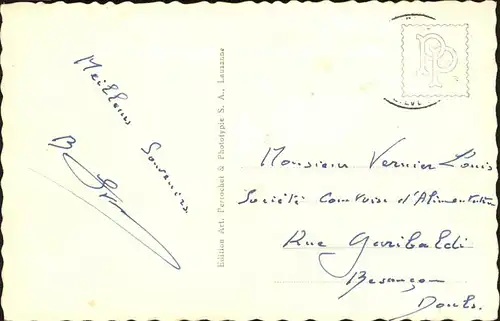 Meilleurs
Souvenirs
B
Edition Art. Perrochet & Phototypie S. A., Lausanne
PP
Monsieur Vernier Louis
Société Comtoise d'Alimentation
Rue Garibaldi
Besançon
Doubs.